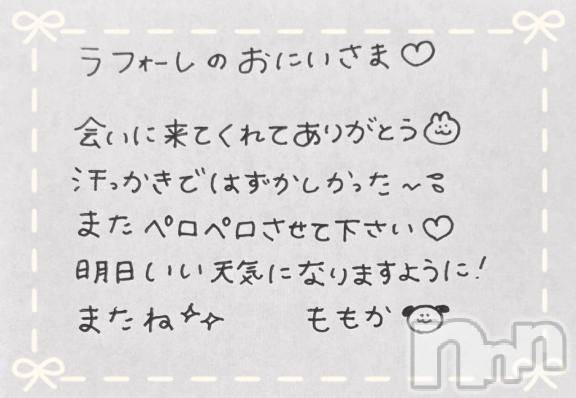 ラフォーレのおにいさま♡
会いに来てくれてありがとう
汗っかきではずかしかった〜
またペロペロさせて下さい♡
明日いい天気になりますように!
またね ももか
Nnn